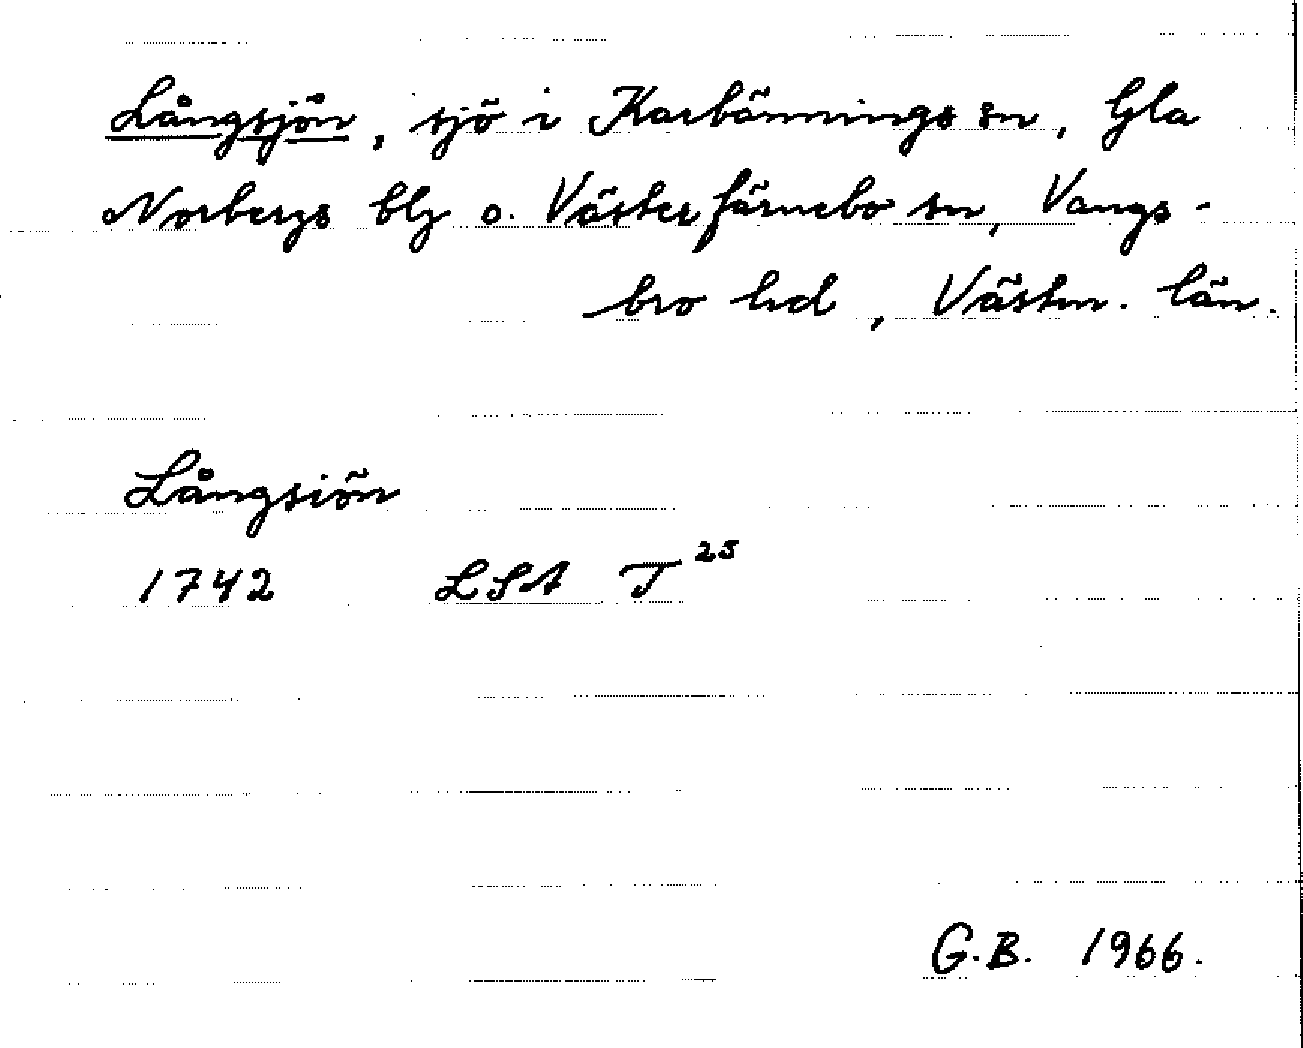 Långsjön, sjö i Karbännings sn, Gla
Norbergs blg o. Västerfärnebo sn, Vangs-
bro hd, Västm. län.
Långsiön
1742 LSA T 25
G.B. 1966.